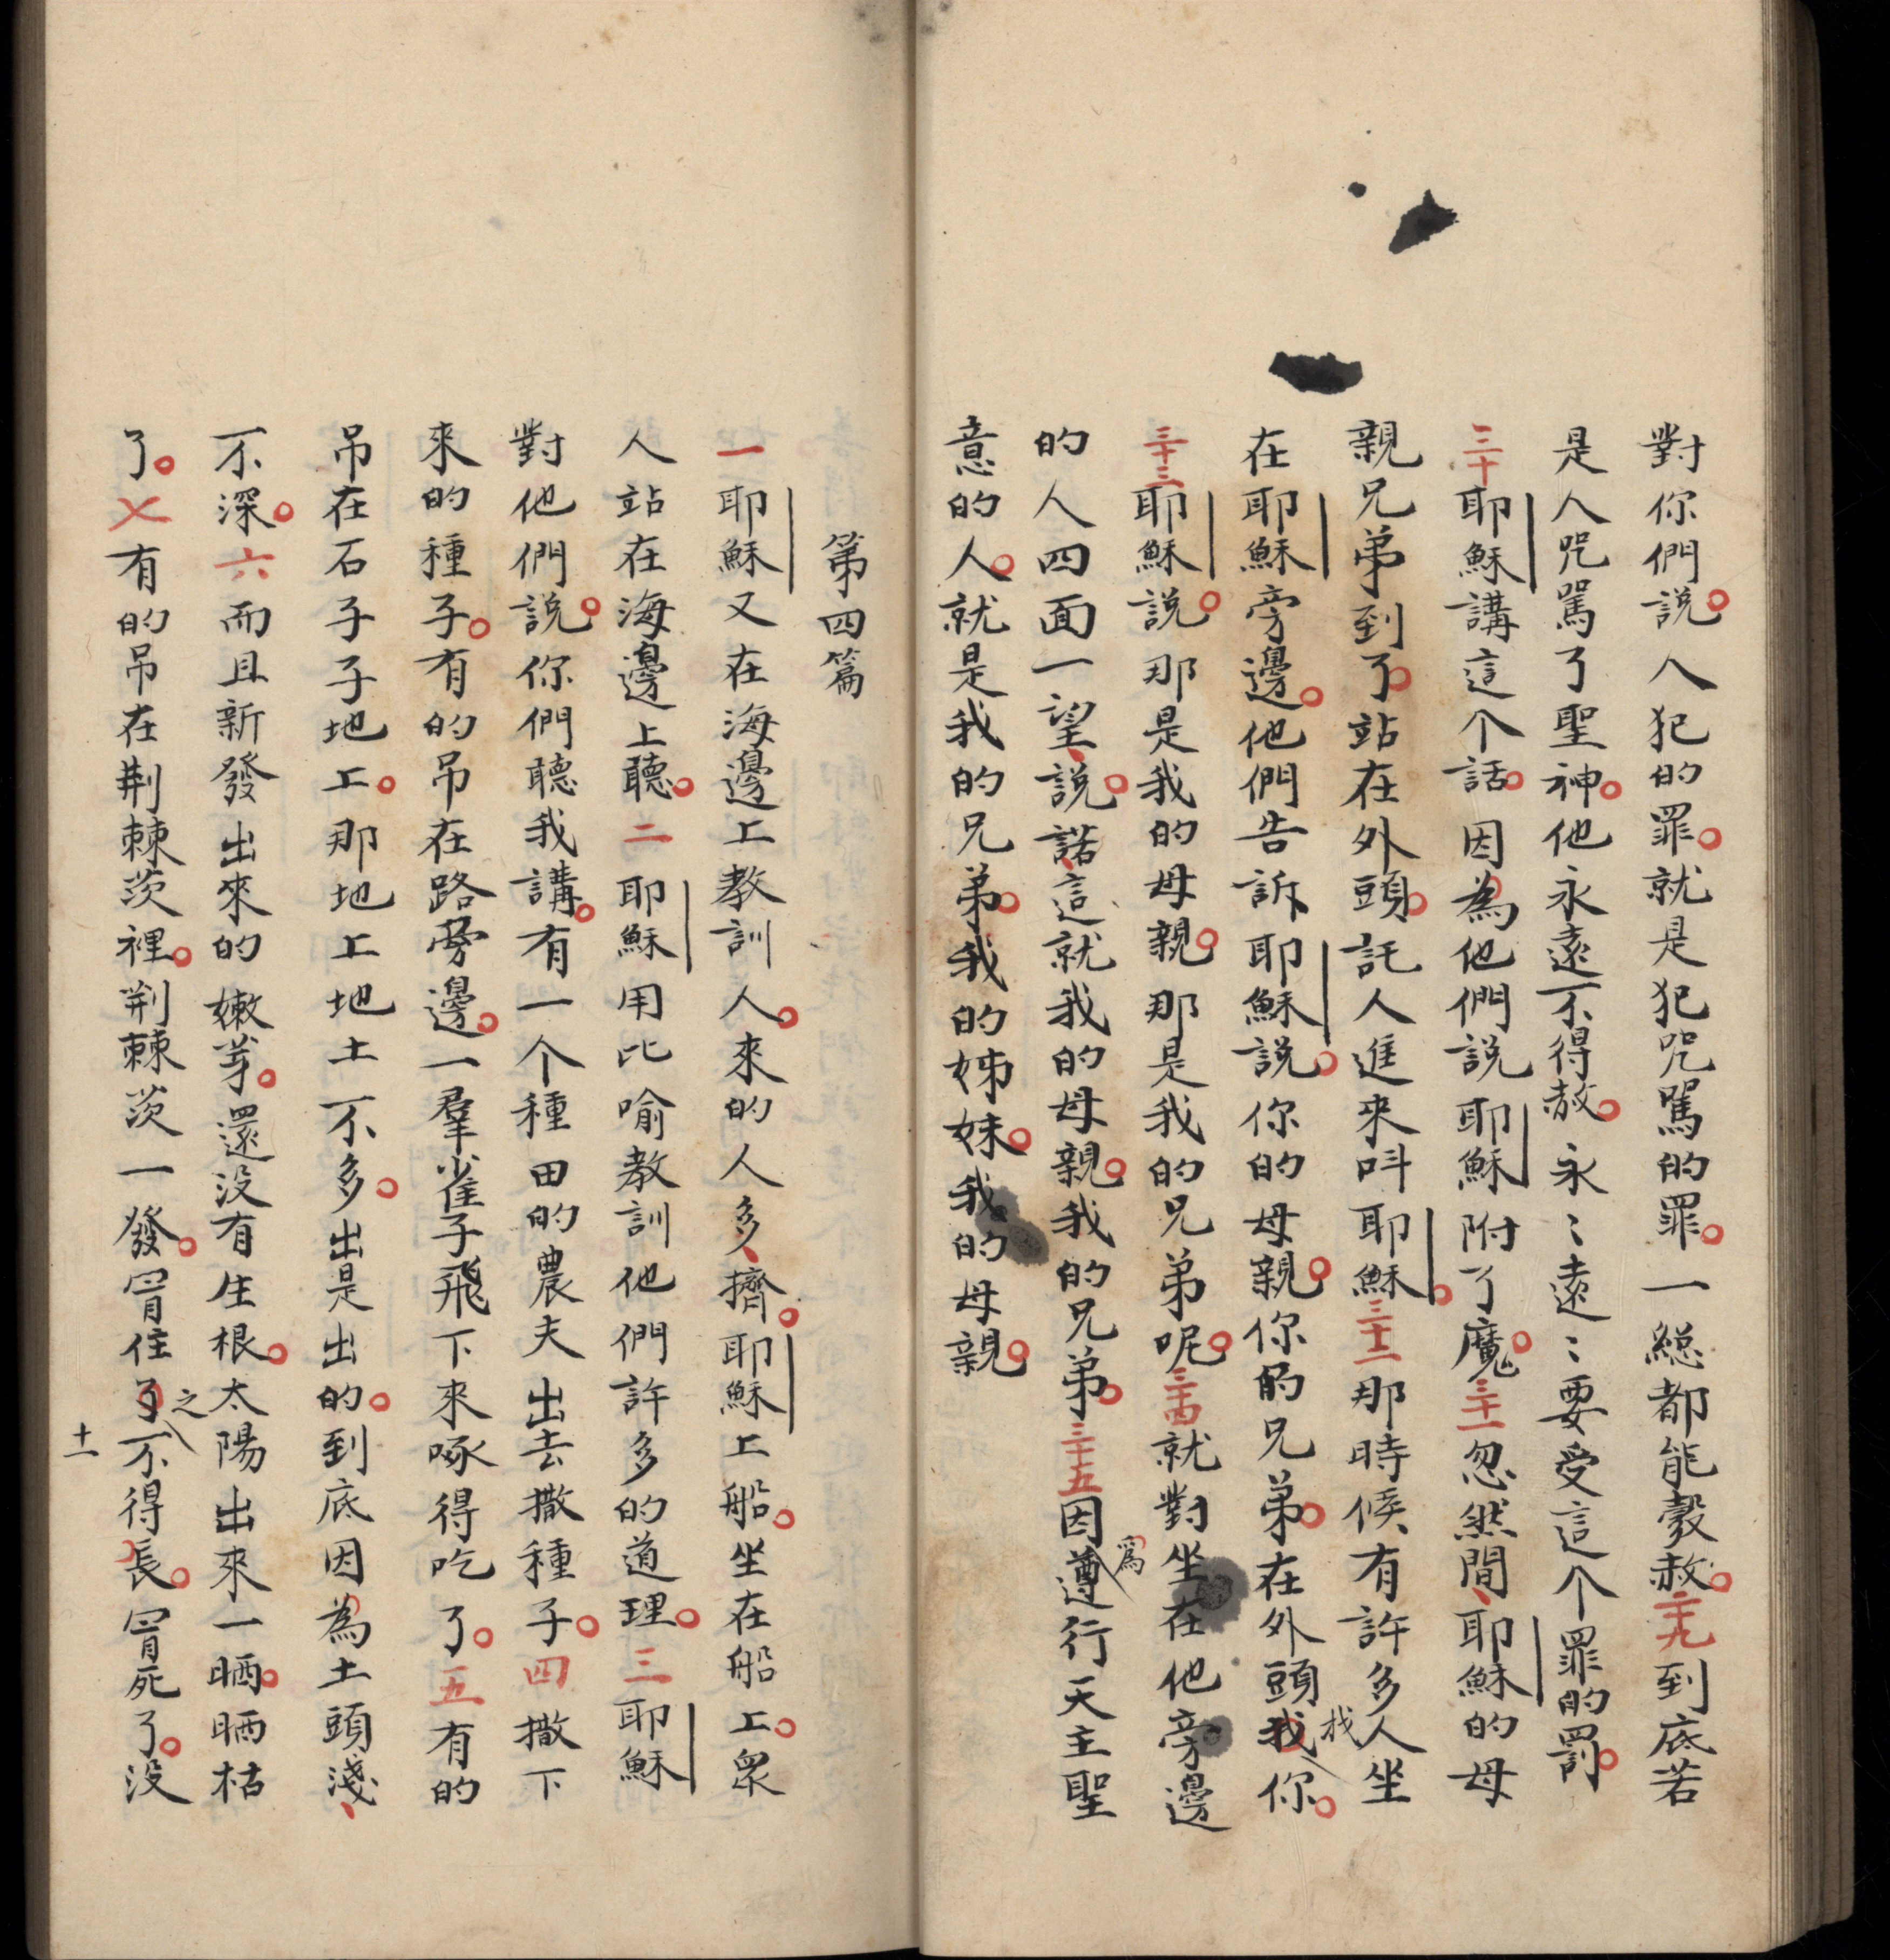 對你們説。人犯的罪。就是犯咒駡的罪。一総都能彀赦。二十九到底若
是人咒駡了聖神。他永遠不得赦。永〻遠〻要受這个罪的罰。
三十耶穌講這个話。因為他們説耶穌附了魔。三十一忽然間、耶穌的母
親兄弟到了。站在外頭。託人進來呌耶穌。三十二那時候有許多人坐
在耶穌旁邊。他們告訴耶穌説。你的母親。你的兄弟。在外頭找你。
三十三耶穌説。那是我的母親。那是我的兄弟呢。三十四就對坐在他旁邊
的人四面一望、説。諾、這就我的母親。我的兄弟。三十五因爲遵行天主聖
意的人。就是我的兄弟。我的姊妹。我的母親。
第四篇
一耶穌又在海邊上教訓人。來的人多、擠。耶穌上船。坐在船上。衆
人站在海邊上聽。二耶穌用比喻教訓他們許多的道理。三耶穌
對他們説。你們聽我講。有一个種田的農夫出去撒種子。四撒下
來的種子。有的吊在路旁邊。一羣雀子飛下來啄得吃了。五有的
吊在石子子地上。那地上地土不多。出是出的。到底因為土頭淺、
不深。六而且新發出來的嫩芽。還没有生根。太陽出來一晒。晒枯
了。七有的吊在荆棘茨裡。荆棘茨一發。罥住之不得長。罥死了。没
十一